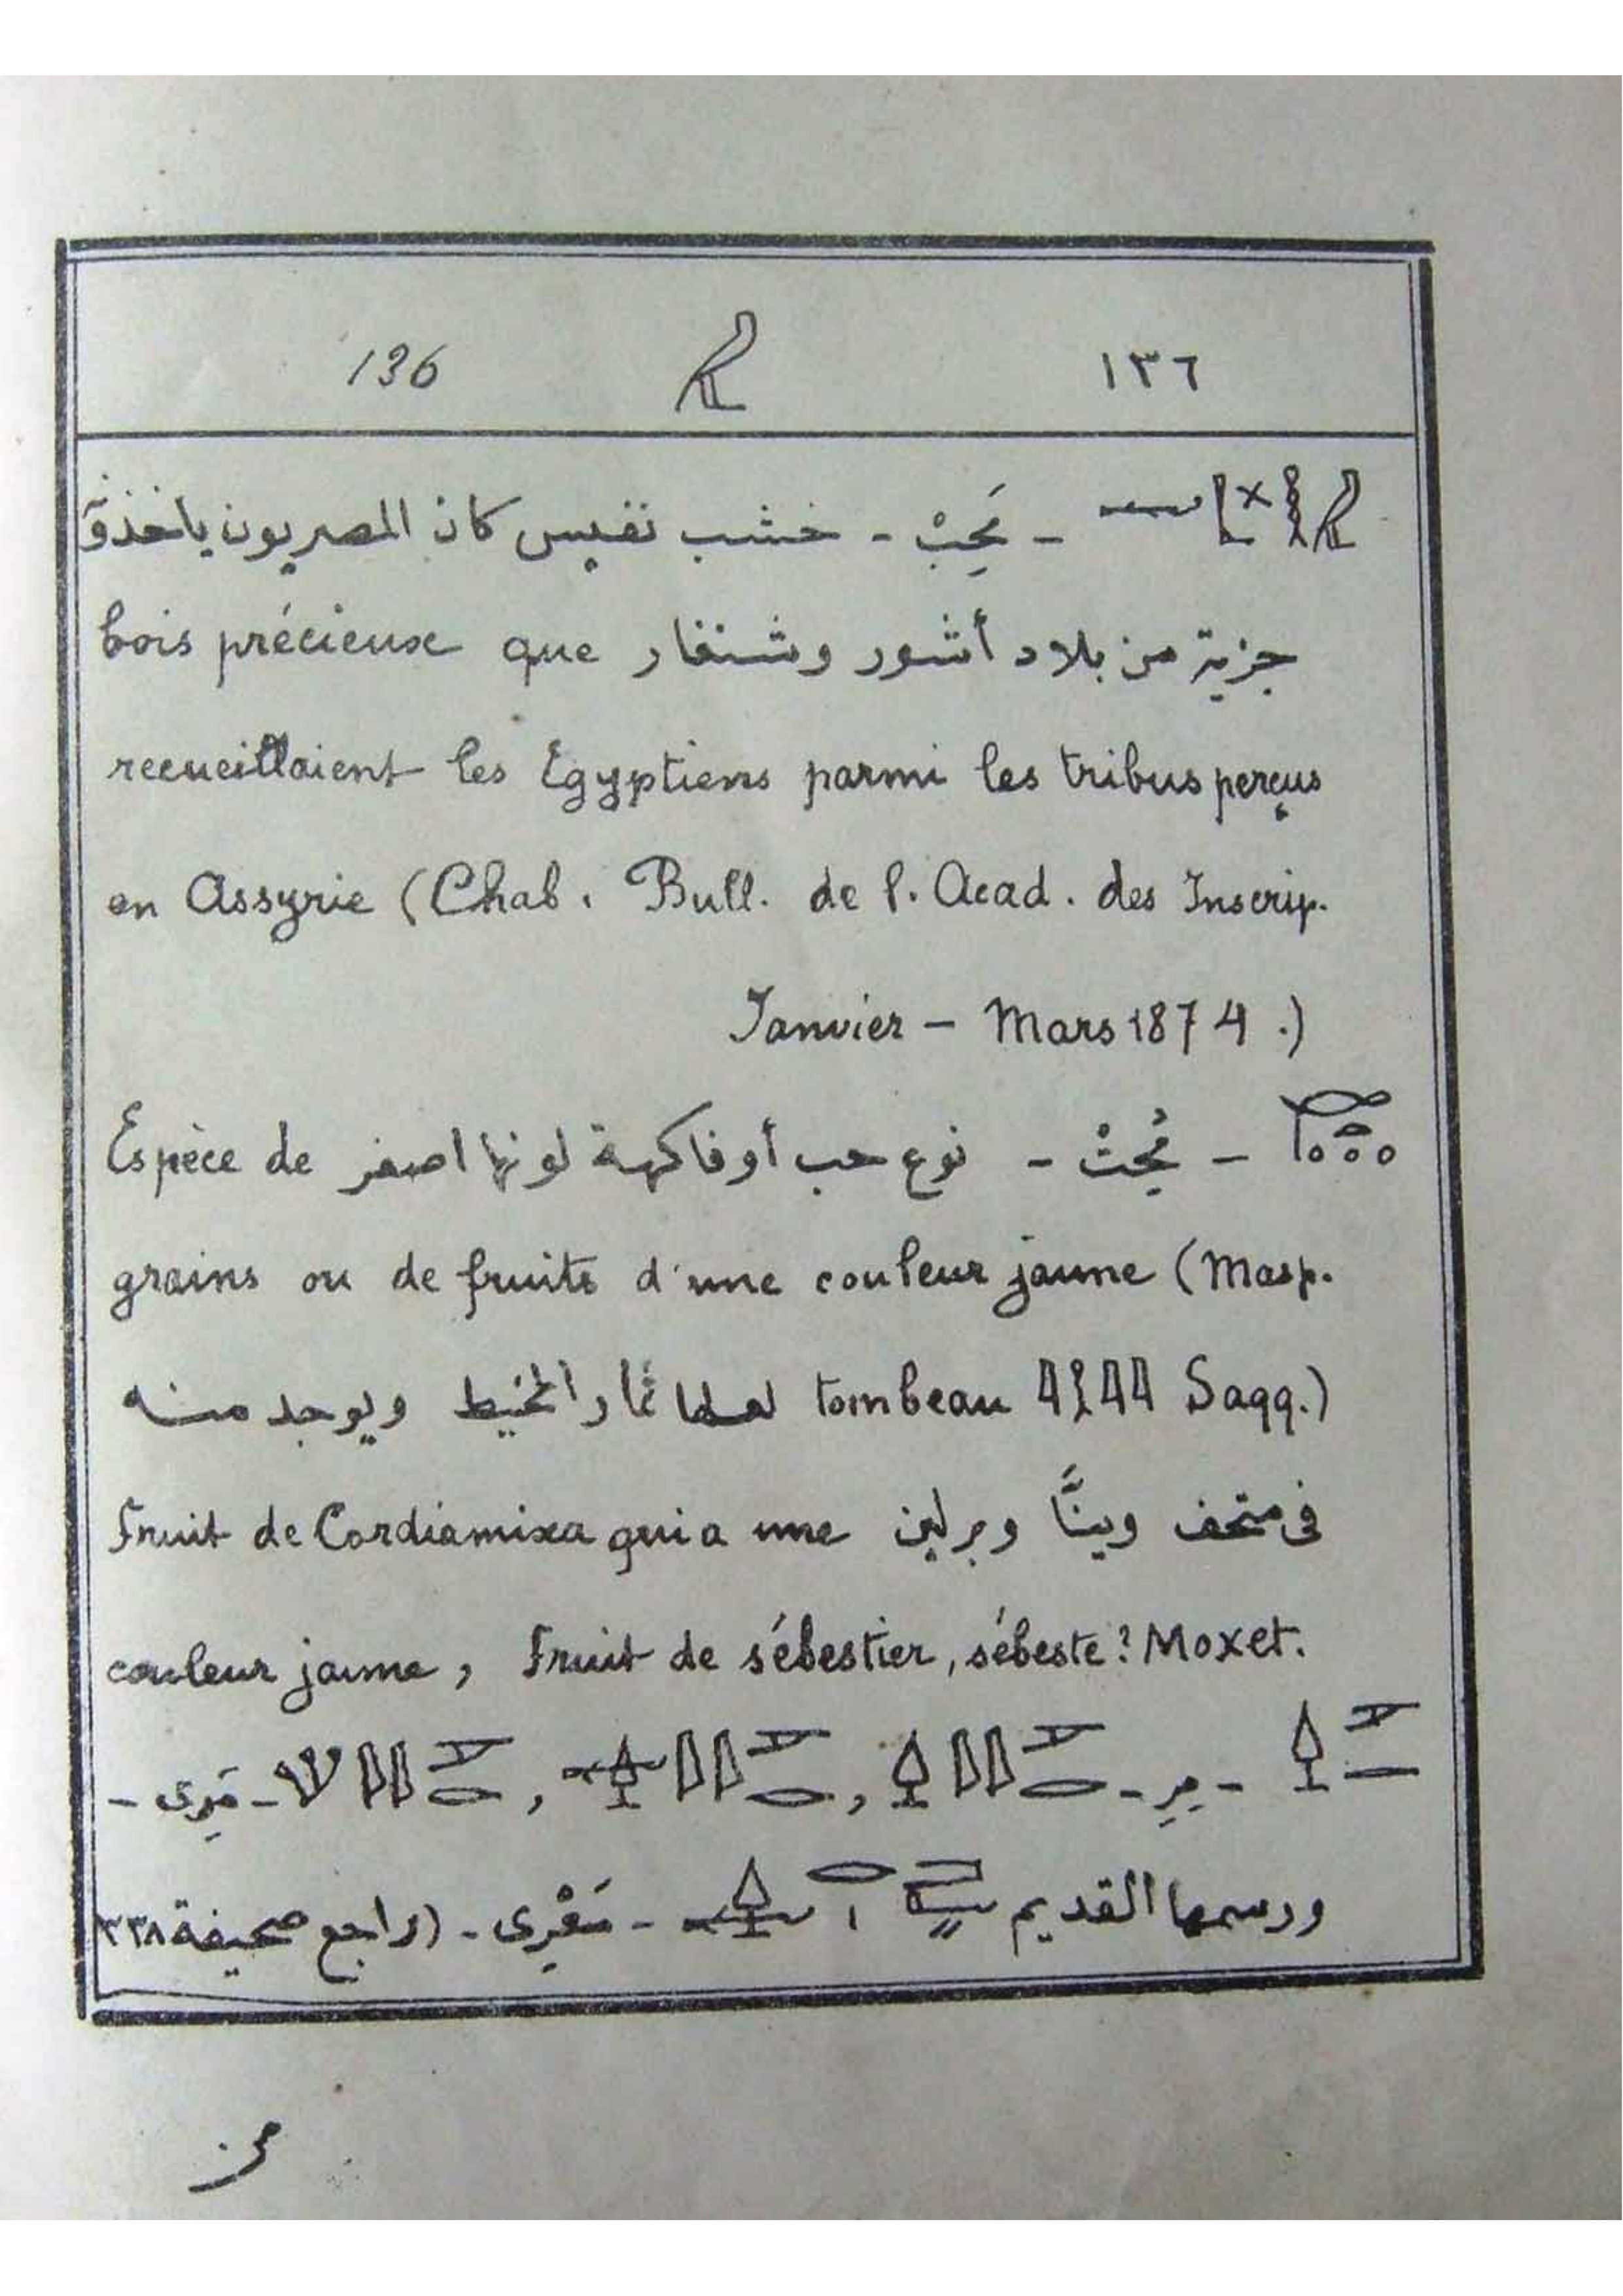 136 ١٣٦
- مَحِبْ - خشب نفيس كان المصريون ياخذونه
جزية من بلاد أشور وشنغار bois précieux que
recueillaient les Egyptiens parmi les tribus perçus
en Assyrie (Chab. Bull. de l. Acad. des Inscrip.
Janvier – Mars 1874.)
- مُحِتْ - نوع حب أو فاكهة لونها اصفر Espèce de
grains ou de fruits d'une couleur jaune (Masp.
tombeau Saqq.) لعلها ثمار المخيط ويوجد منه
فى متحف وينَّا وبرلين Fruit de Cordiamixa qui a une
couleur jaune, Fruit de sébestier, sébeste? Moxet.
- مِرِ - , , - مَرِى -
ورسمها القديم - مَعْرِى - (راجع صحيفة ٣٣٨
من